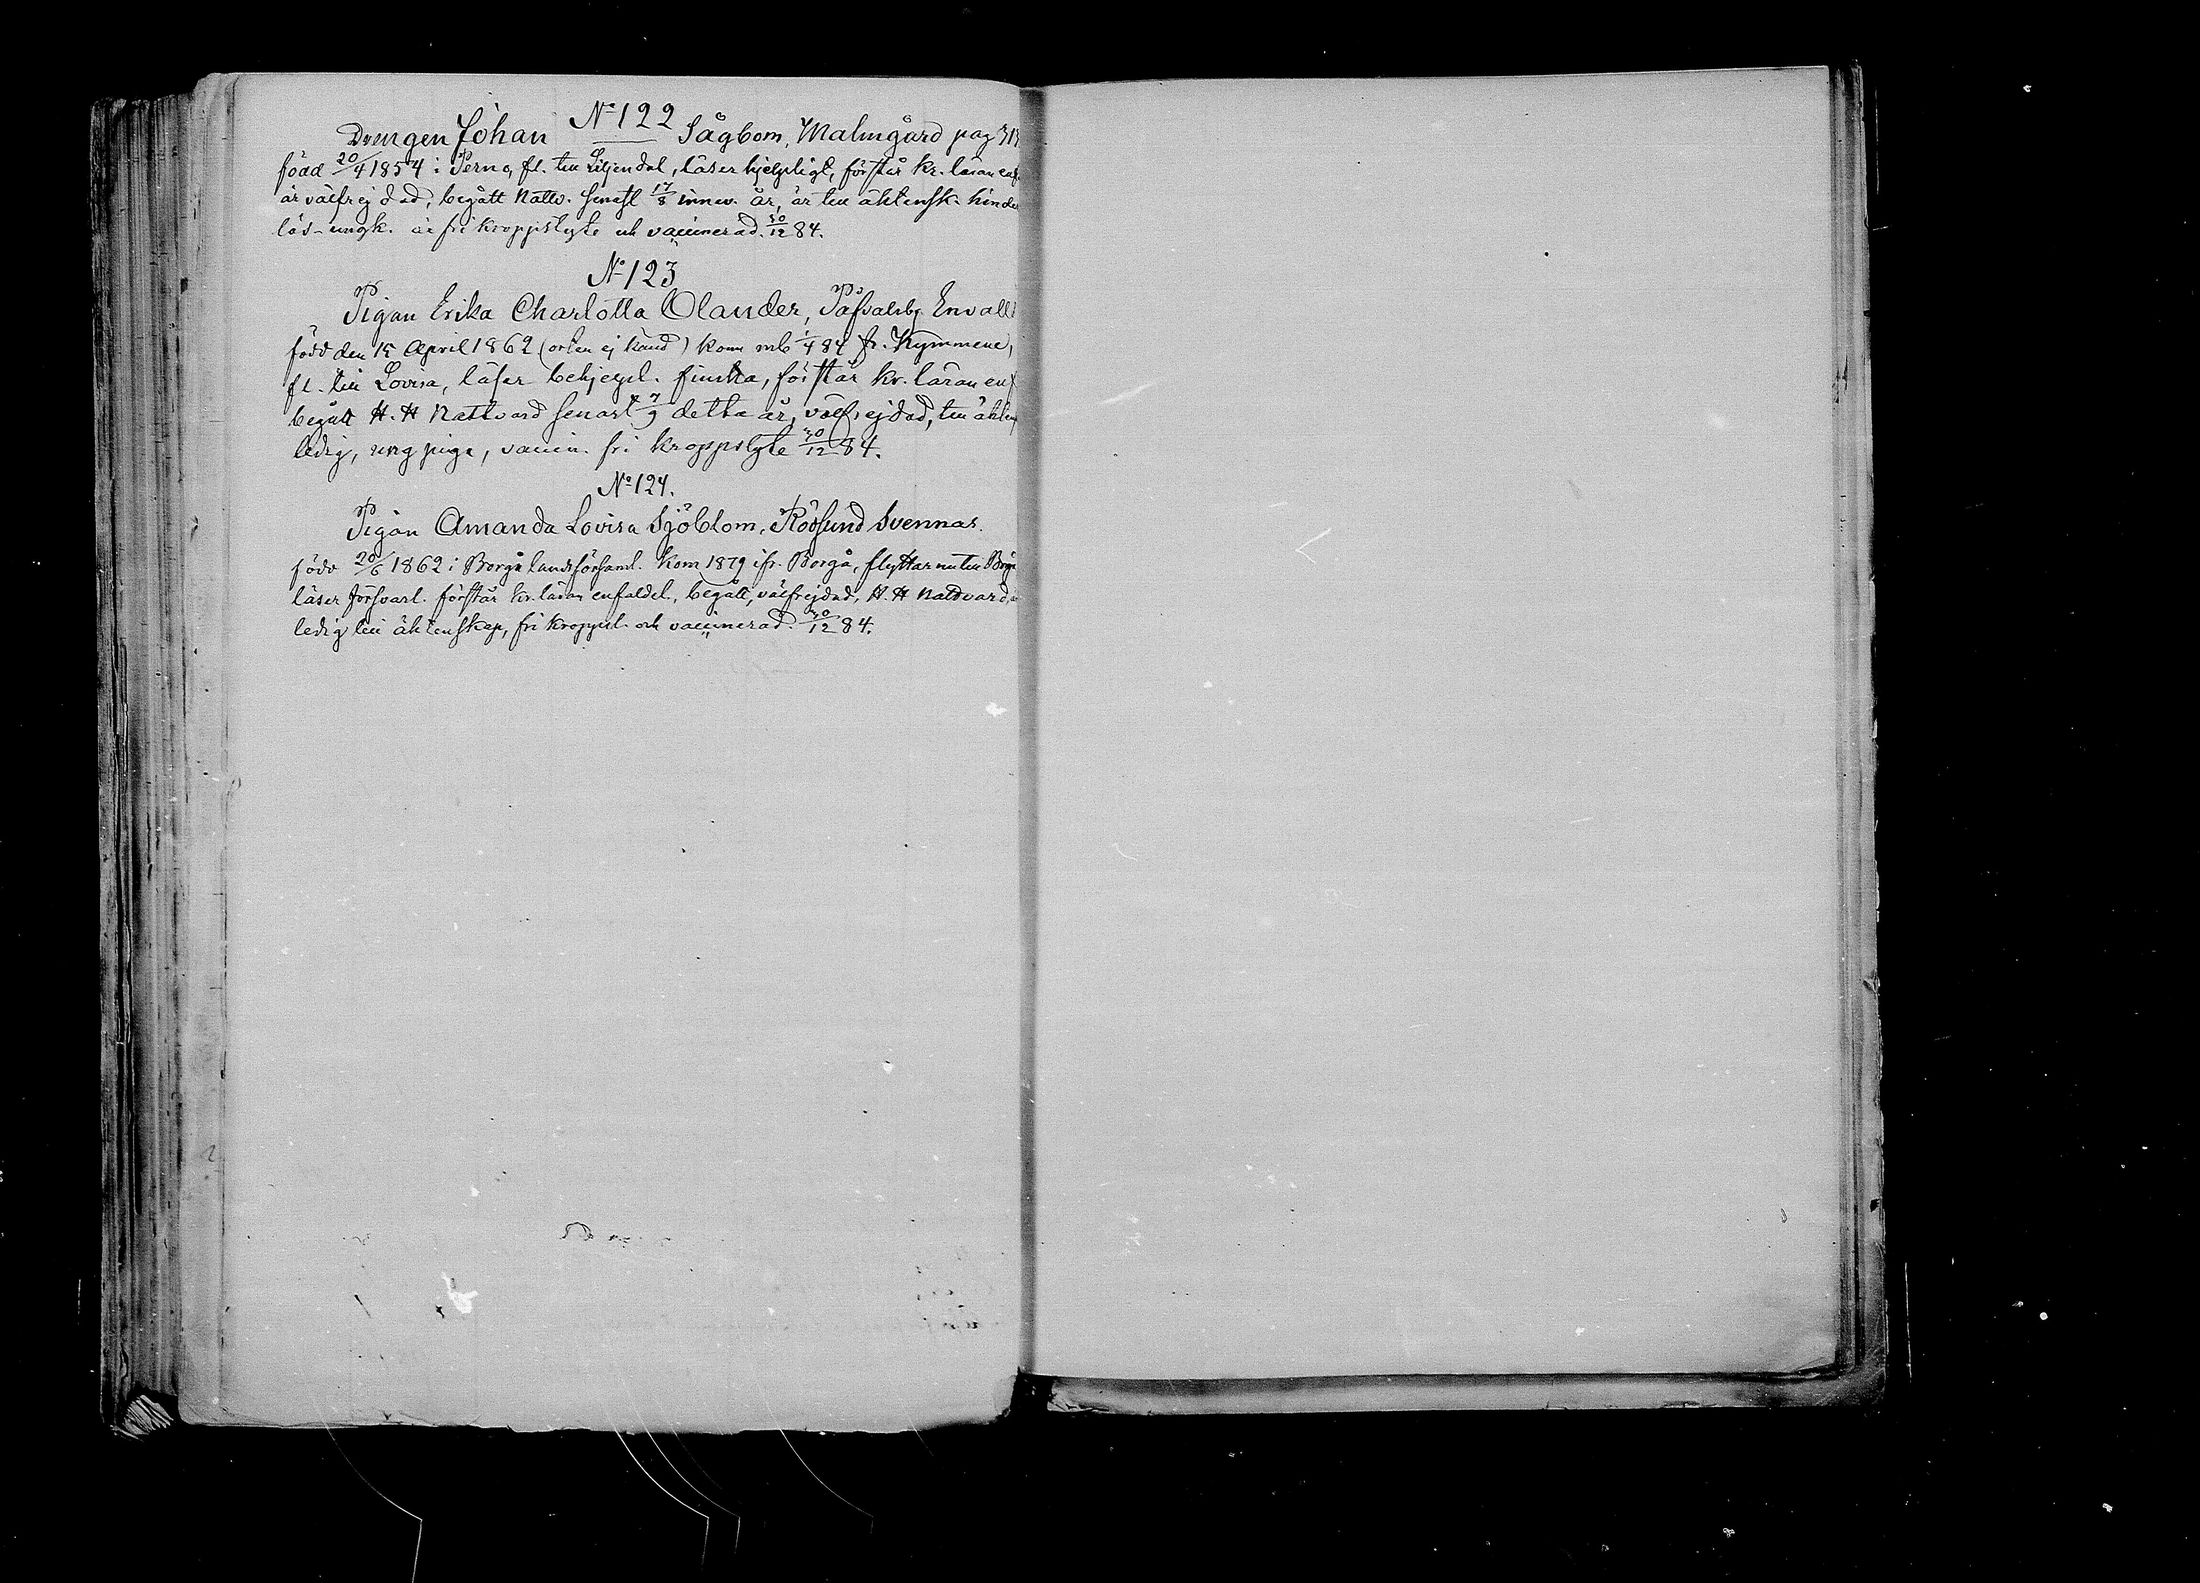 No 122
Drengen Johan Sågbom, Malmgård pag 313
född 20/4 1854 i Perno, fl. till Liljendal, läser hjelpligt, förstår kr. läran enf.
är välfrejdad, begått Nattv. senast 17/8 innev. år, är till äktensk. hinder
lös - ungk. är fri kroppslyte och vaccinerad. 30/12 84.
No 123
Pigan Erika Charlotta Olander, Påfvalsby Envall
född den 15 April 1862 (orten ej känd) kom mb 1/4 84 fr. Kymmene,
fl. till Lovisa, läser behjepl. finska, förstår kr. läran enf
begått H. H Nattvard senast 7/9 detta år, välfrejdad, till äkten
ledig, ung piga, vaccin. fri kroppslyte 30/12 84.
No 124.
Pigan Amanda Lovisa Sjöblom, Rödsund Svennas.
född 20/6 1862 i Borgå landsförsaml. kom 1879 ifr. Borgå, flyttar nu till Borgå
läser försvarl. förstår kr. läran enfaldel., begått, välfrejdad, H. H nattvard,
ledig till äktenskap, fri kroppsl. och vaccinerad. 30/12 84.